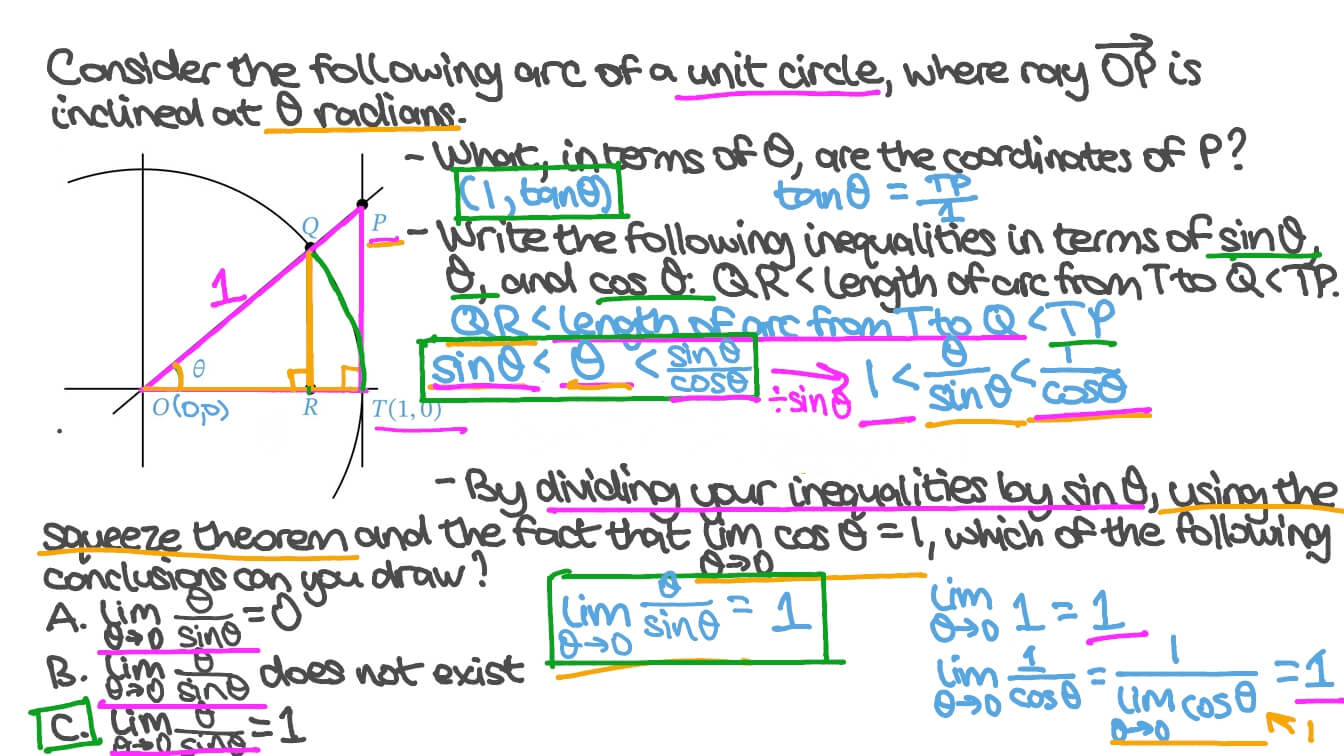 Consider the following arc of a unit circle, where ray OP is
inclined at θ radians.
- What, in terms of θ, are the coordinates of P?
(1, tanθ)
tanθ = TP/1
- Write the following inequalities in terms of sinθ,
θ, and cos θ: QR < length of arc from T to Q < TP.
QR < length of arc from T to Q < TP
sinθ < θ < sinθ/cosθ
÷sinθ
1 < θ/sinθ < 1/cosθ
Q
P
1
θ
O(0,0)
R
T(1, 0)
- By dividing your inequalities by sin θ, using the
squeeze theorem and the fact that lim cos θ = 1, which of the following
θ→0
conclusions can you draw?
A. lim θ→0 θ/sinθ = 0
B. lim θ→0 θ/sinθ does not exist
C. lim θ→0 θ/sinθ = 1
lim θ→0 θ/sinθ = 1
lim θ→0 1 = 1
lim θ→0 1/cosθ = 1/lim θ→0 cosθ = 1
1